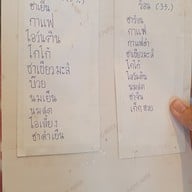 ชาเย็น
กาแฟ
โอวัลติน
โกโก้
ชาเขียวมะลิ
นมเย็น
นมสด
โอเลี้ยง
ชาดำเย็น
ร้อน (35.)
ชาร้อน
กาแฟ
กาแฟดำ
ชาเขียวมะลิ
โกโก้
โอวัลติน
นมสด
ชาจีน
เก๊กฮวย